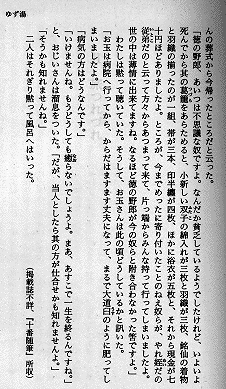 ゆず湯
んの葬式から帰ったところだと云った。
「徳の野郎、あいつは不思議な奴ですよ。なんだか貧乏しているようでしたけれど、いよいよ
死んでから其の葛籠をあらためると、小新しい双子の綿入れが三枚と羽織が三枚、銘仙の着物
と羽織と揃ったのが一組、帯が三本、印半纏が四枚、ほかに浴衣が五枚と、それから現金が七
十円ほどありましたよ。ところが、今までめったに寄り付いたことのねえ奴らが、やれ姪だの
従弟だのと云って方々からあつまって来て、片っ端からみんな持って行ってしまいましたよ。
世の中は薄情に出来てますね。なるほど徳の野郎が今の奴らと附き合わなかった筈ですよ。」
わたしは黙って聴いていた。そうして、お玉さんは此の頃どうしているかと訊いた。
「お玉は病院へ行ってから、からだはますます丈夫になって、まるで大道臼のように肥ってし
まいましたよ。」
「病気の方はどうなんです。」
「いけませんね。もうどうしても癒らないでしょうよ。まあ、あすこで一生を終るんですね。」
と、おじいさんは溜息をついた。「だが、当人としたら其の方が仕合せかも知れませんよ。」
「そうかも知れませんね。」
二人はそれぎり黙って風呂へはいった。
（掲載誌不詳、『十番随筆』所収）